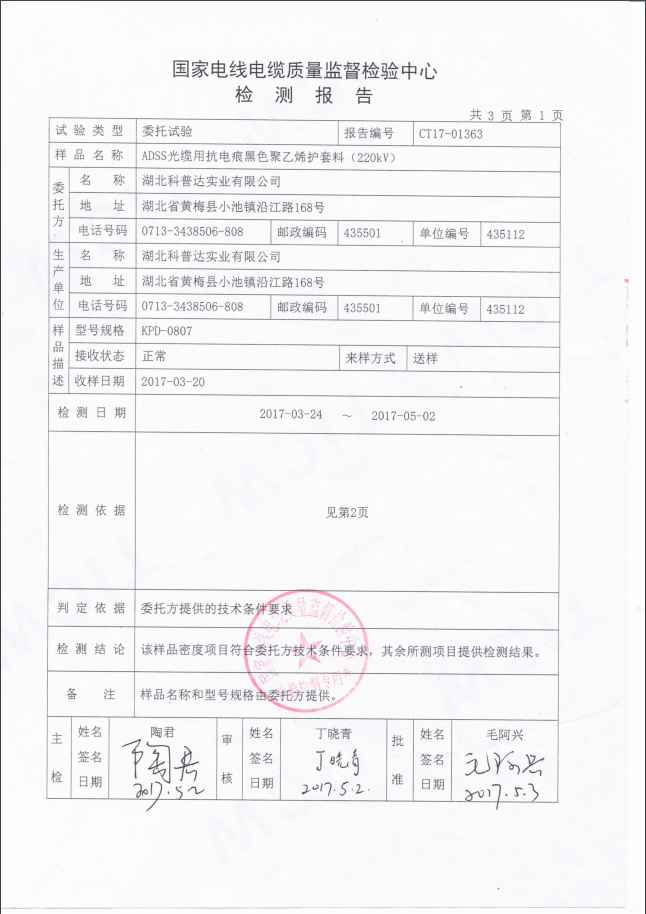 国家电线电缆质量监督检验中心
检 测 报 告
共 3 页 第 1 页
试 验 类 型 委托试验 报告编号 CT17-01363
样 品 名 称 ADSS光缆用抗电痕黑色聚乙烯护套料（220kV）
委托方 名 称 湖北科普达实业有限公司
地 址 湖北省黄梅县小池镇沿江路168号
电话号码 0713-3438506-808 邮政编码 435501 单位编号 435112
生产单位 名 称 湖北科普达实业有限公司
地 址 湖北省黄梅县小池镇沿江路168号
电话号码 0713-3438506-808 邮政编码 435501 单位编号 435112
样品描述 型号规格 KPD-0807
接收状态 正常 来样方式 送样
收样日期 2017-03-20
检 测 日 期 2017-03-24 ～ 2017-05-02
检 测 依 据 见第2页
判 定 依 据 委托方提供的技术条件要求
检 测 结 论 该样品密度项目符合委托方技术条件要求，其余所测项目提供检测结果。
备 注 样品名称和型号规格由委托方提供。
主检 姓名 陶君 审核 姓名 丁晓青 批准 姓名 毛阿兴
签名 陶君 签名 丁晓青 签名 毛阿兴
日期 2017.5.2 日期 2017.5.2. 日期 2017.5.3